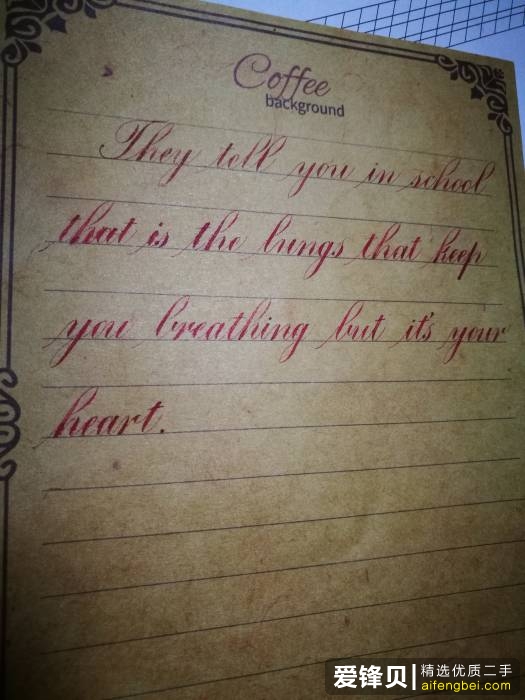 Coffee
background
They tell you in school
that is the lungs that keep
you breathing but it's your
heart.
爱锋贝
精选优质二手
aifengbei.com